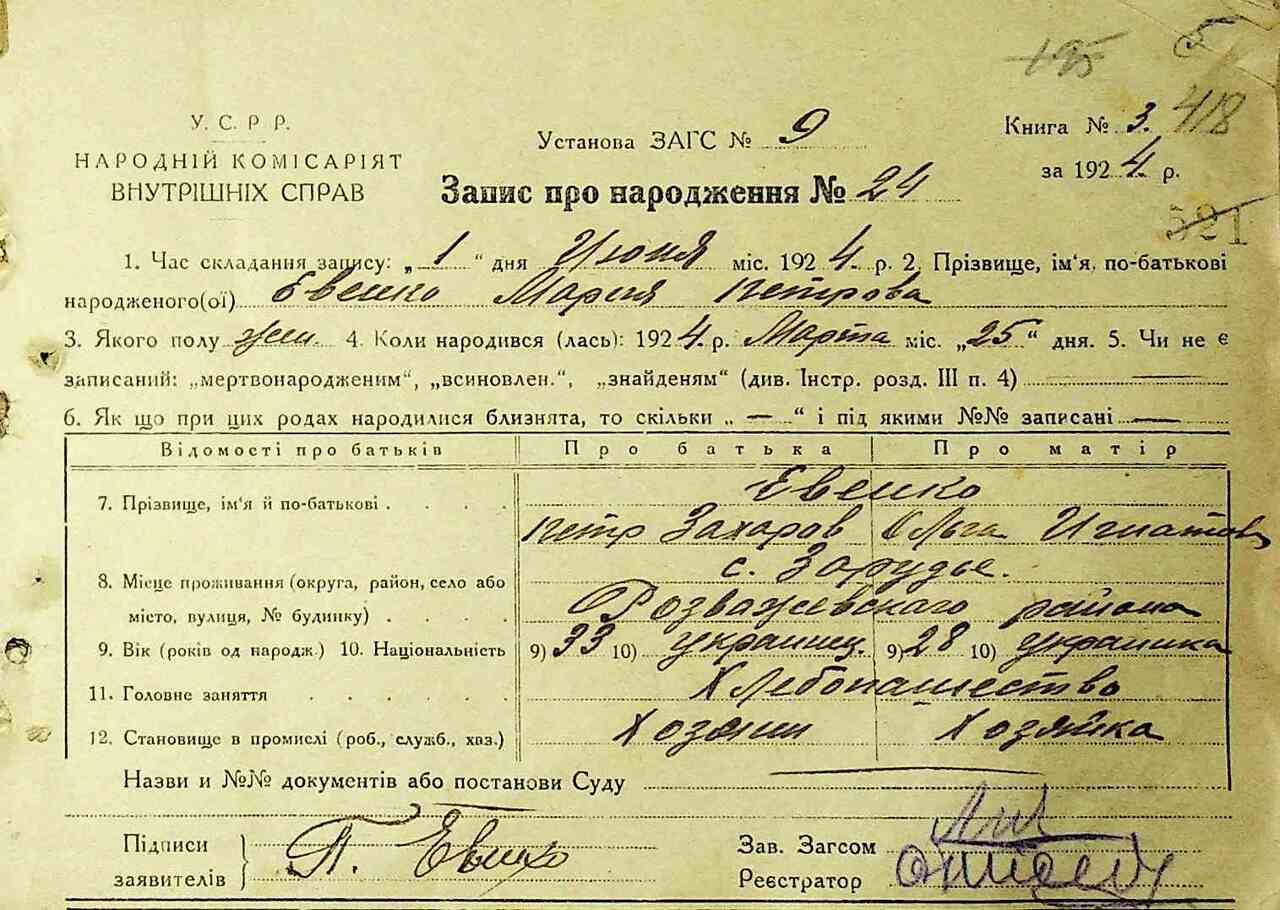 195 5
У. С. Р. Р.
НАРОДНІЙ КОМІСАРІЯТ
ВНУТРІШНІХ СПРАВ
Установа ЗАГС № 9
Книга № 3. 418
за 1924 р.
Запис про народження № 24
521
1. Час складання запису: „1" дня Июня міс. 1924. р. 2. Прізвище, ім'я, по-батькові
народженого(ої) Евенко Мария Петрова
3. Якого полу жен. 4. Коли народився (лась): 1924. р. Марта міс. „25" дня. 5. Чи не є
записаний: „мертвонародженим", „всиновлен.", „знайденям" (див. Інстр. розд. III п. 4) —
6. Як що при цих родах народилися близнята, то скільки „ — " і під якими №№ записані —
Відомості про батьків Про батька Про матір
7. Прізвище, ім'я й по-батькові . . . . Евенко
Петр Захаров Ольга Игнатов
8. Місце проживання (округа, район, село або с. Зарудье.
місто, вулиця, № будинку) . . . . Розважевскаго района
9. Вік (років од народж.) 10. Національність 9) 33 10) украинец. 9) 28 10) украинка
11. Головне заняття . . . . . Хлебопашество
12. Становище в промислі (роб., служб., хвз.) Хозяин Хозяйка
Назви и №№ документів або постанови Суду
Підписи
заявителів } П. Евенко
Зав. Загсом
Реєстратор